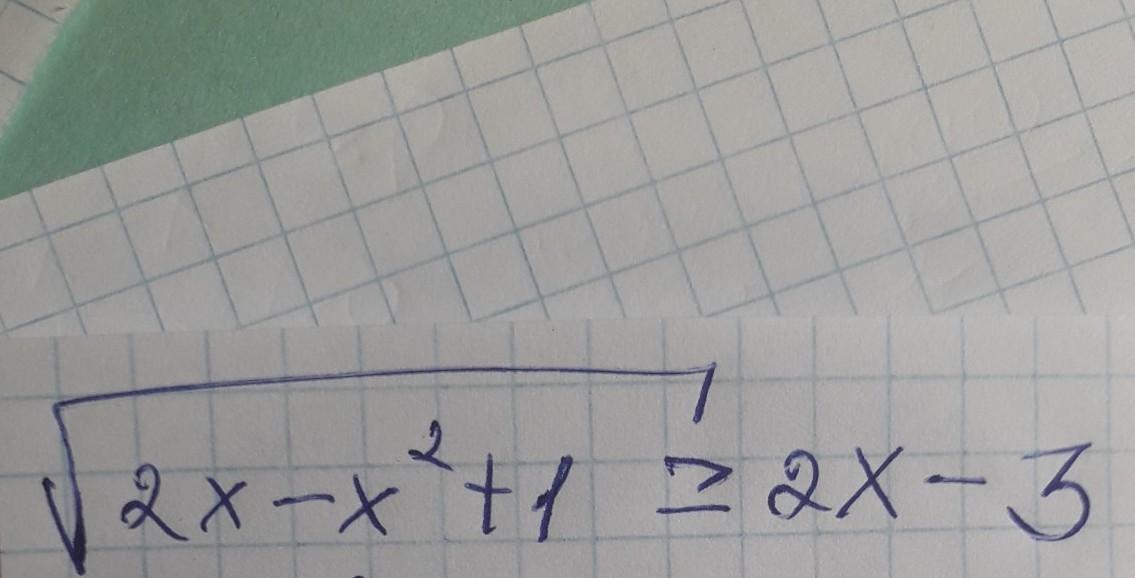 √(2x-x²+1) ≥ 2x-3